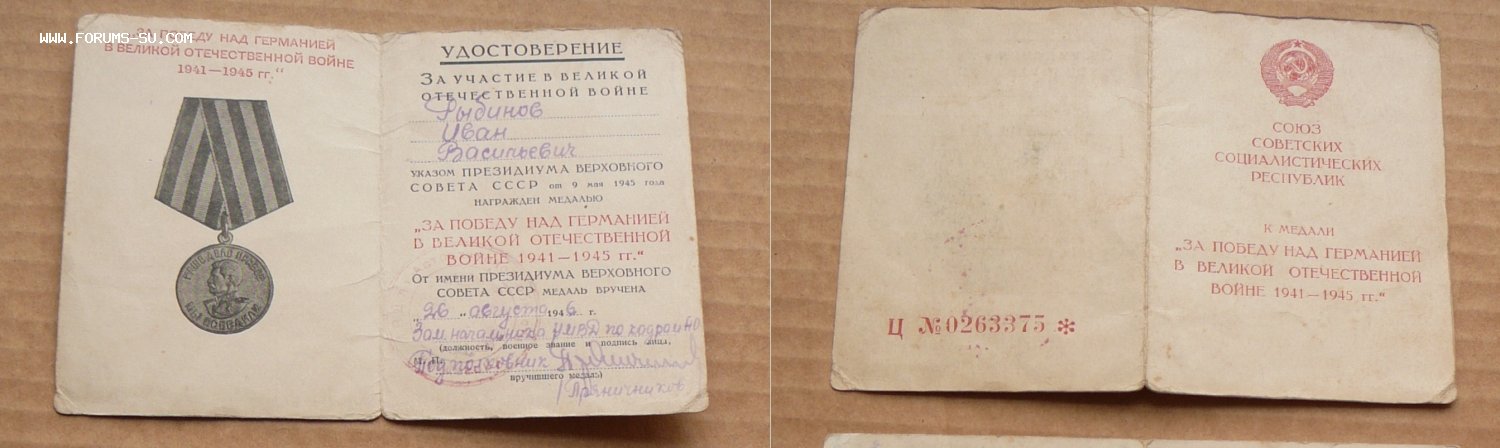 www.FORUMS-SU.COM
"ЗА ПОБЕДУ НАД ГЕРМАНИЕЙ
В ВЕЛИКОЙ ОТЕЧЕСТВЕННОЙ ВОЙНЕ
1941—1945 гг."
НАШЕ ДЕЛО ПРАВОЕ
МЫ ПОБЕДИЛИ
УДОСТОВЕРЕНИЕ
ЗА УЧАСТИЕ В ВЕЛИКОЙ
ОТЕЧЕСТВЕННОЙ ВОЙНЕ
Рыбинов
Иван
Васильевич
УКАЗОМ ПРЕЗИДИУМА ВЕРХОВНОГО
СОВЕТА СССР от 9 мая 1945 года
НАГРАЖДЕН МЕДАЛЬЮ
„ЗА ПОБЕДУ НАД ГЕРМАНИЕЙ
В ВЕЛИКОЙ ОТЕЧЕСТВЕННОЙ
ВОЙНЕ 1941—1945 гг."
ОТ ИМЕНИ ПРЕЗИДИУМА ВЕРХОВНОГО
СОВЕТА СССР МЕДАЛЬ ВРУЧЕНА
„26" августа 1946 г.
Зам. начальника УМВД по кадрам
(должность, военное звание и подпись лица,
М. П. Подполковник
вручившего медаль)
Пряничников
Ц №0263375 *
СОЮЗ
СОВЕТСКИХ
СОЦИАЛИСТИЧЕСКИХ
РЕСПУБЛИК
К МЕДАЛИ
„ЗА ПОБЕДУ НАД ГЕРМАНИЕЙ
В ВЕЛИКОЙ ОТЕЧЕСТВЕННОЙ
ВОЙНЕ 1941—1945 гг."